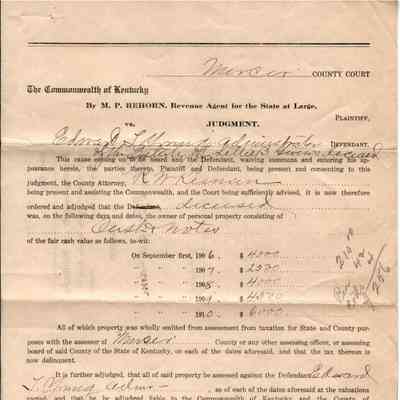 Mercer COUNTY COURT
The Commonwealth of Kentucky
By M. P. REHORN, Revenue Agent for the State at Large,
PLAINTIFF,
vs. JUDGMENT.
administrator DEFENDANT.
deceased
This cause coming on to be heard and the Defendant, waiving summons and entering his ap-
pearance herein, the parties thereto, Plaintiff and Defendant, being present and consenting to this
judgment, the County Attorney,
being present and assisting the Commonwealth, and the Court being sufficiently advised, it is now therefore
ordered and adjudged that the Defendant, deceased
was, on the following days and dates, the owner of personal property consisting of
Cash & notes
of the fair cash value as follows, to-wit:
On September first, 1906. $ 4000
" " " 1907. $ 2500
" " " 1908. $ 4000
" " " 1909. $
" " " 1910. $ 6000
All of which property was wholly emitted from assessment from taxation for State and County pur-
poses with the assessor of Mercer County or any other assessing officer, or assessing
board of said County of the State of Kentucky, on each of the dates aforesaid, and that the tax thereon is
now delinquent.
It is further adjudged, that all of said property be assessed against the Defendant Edward
admr. , as of each of the dates aforesaid at the valuations
stated, and that he be adjudged liable to the Commonwealth of Kentucky and the County of